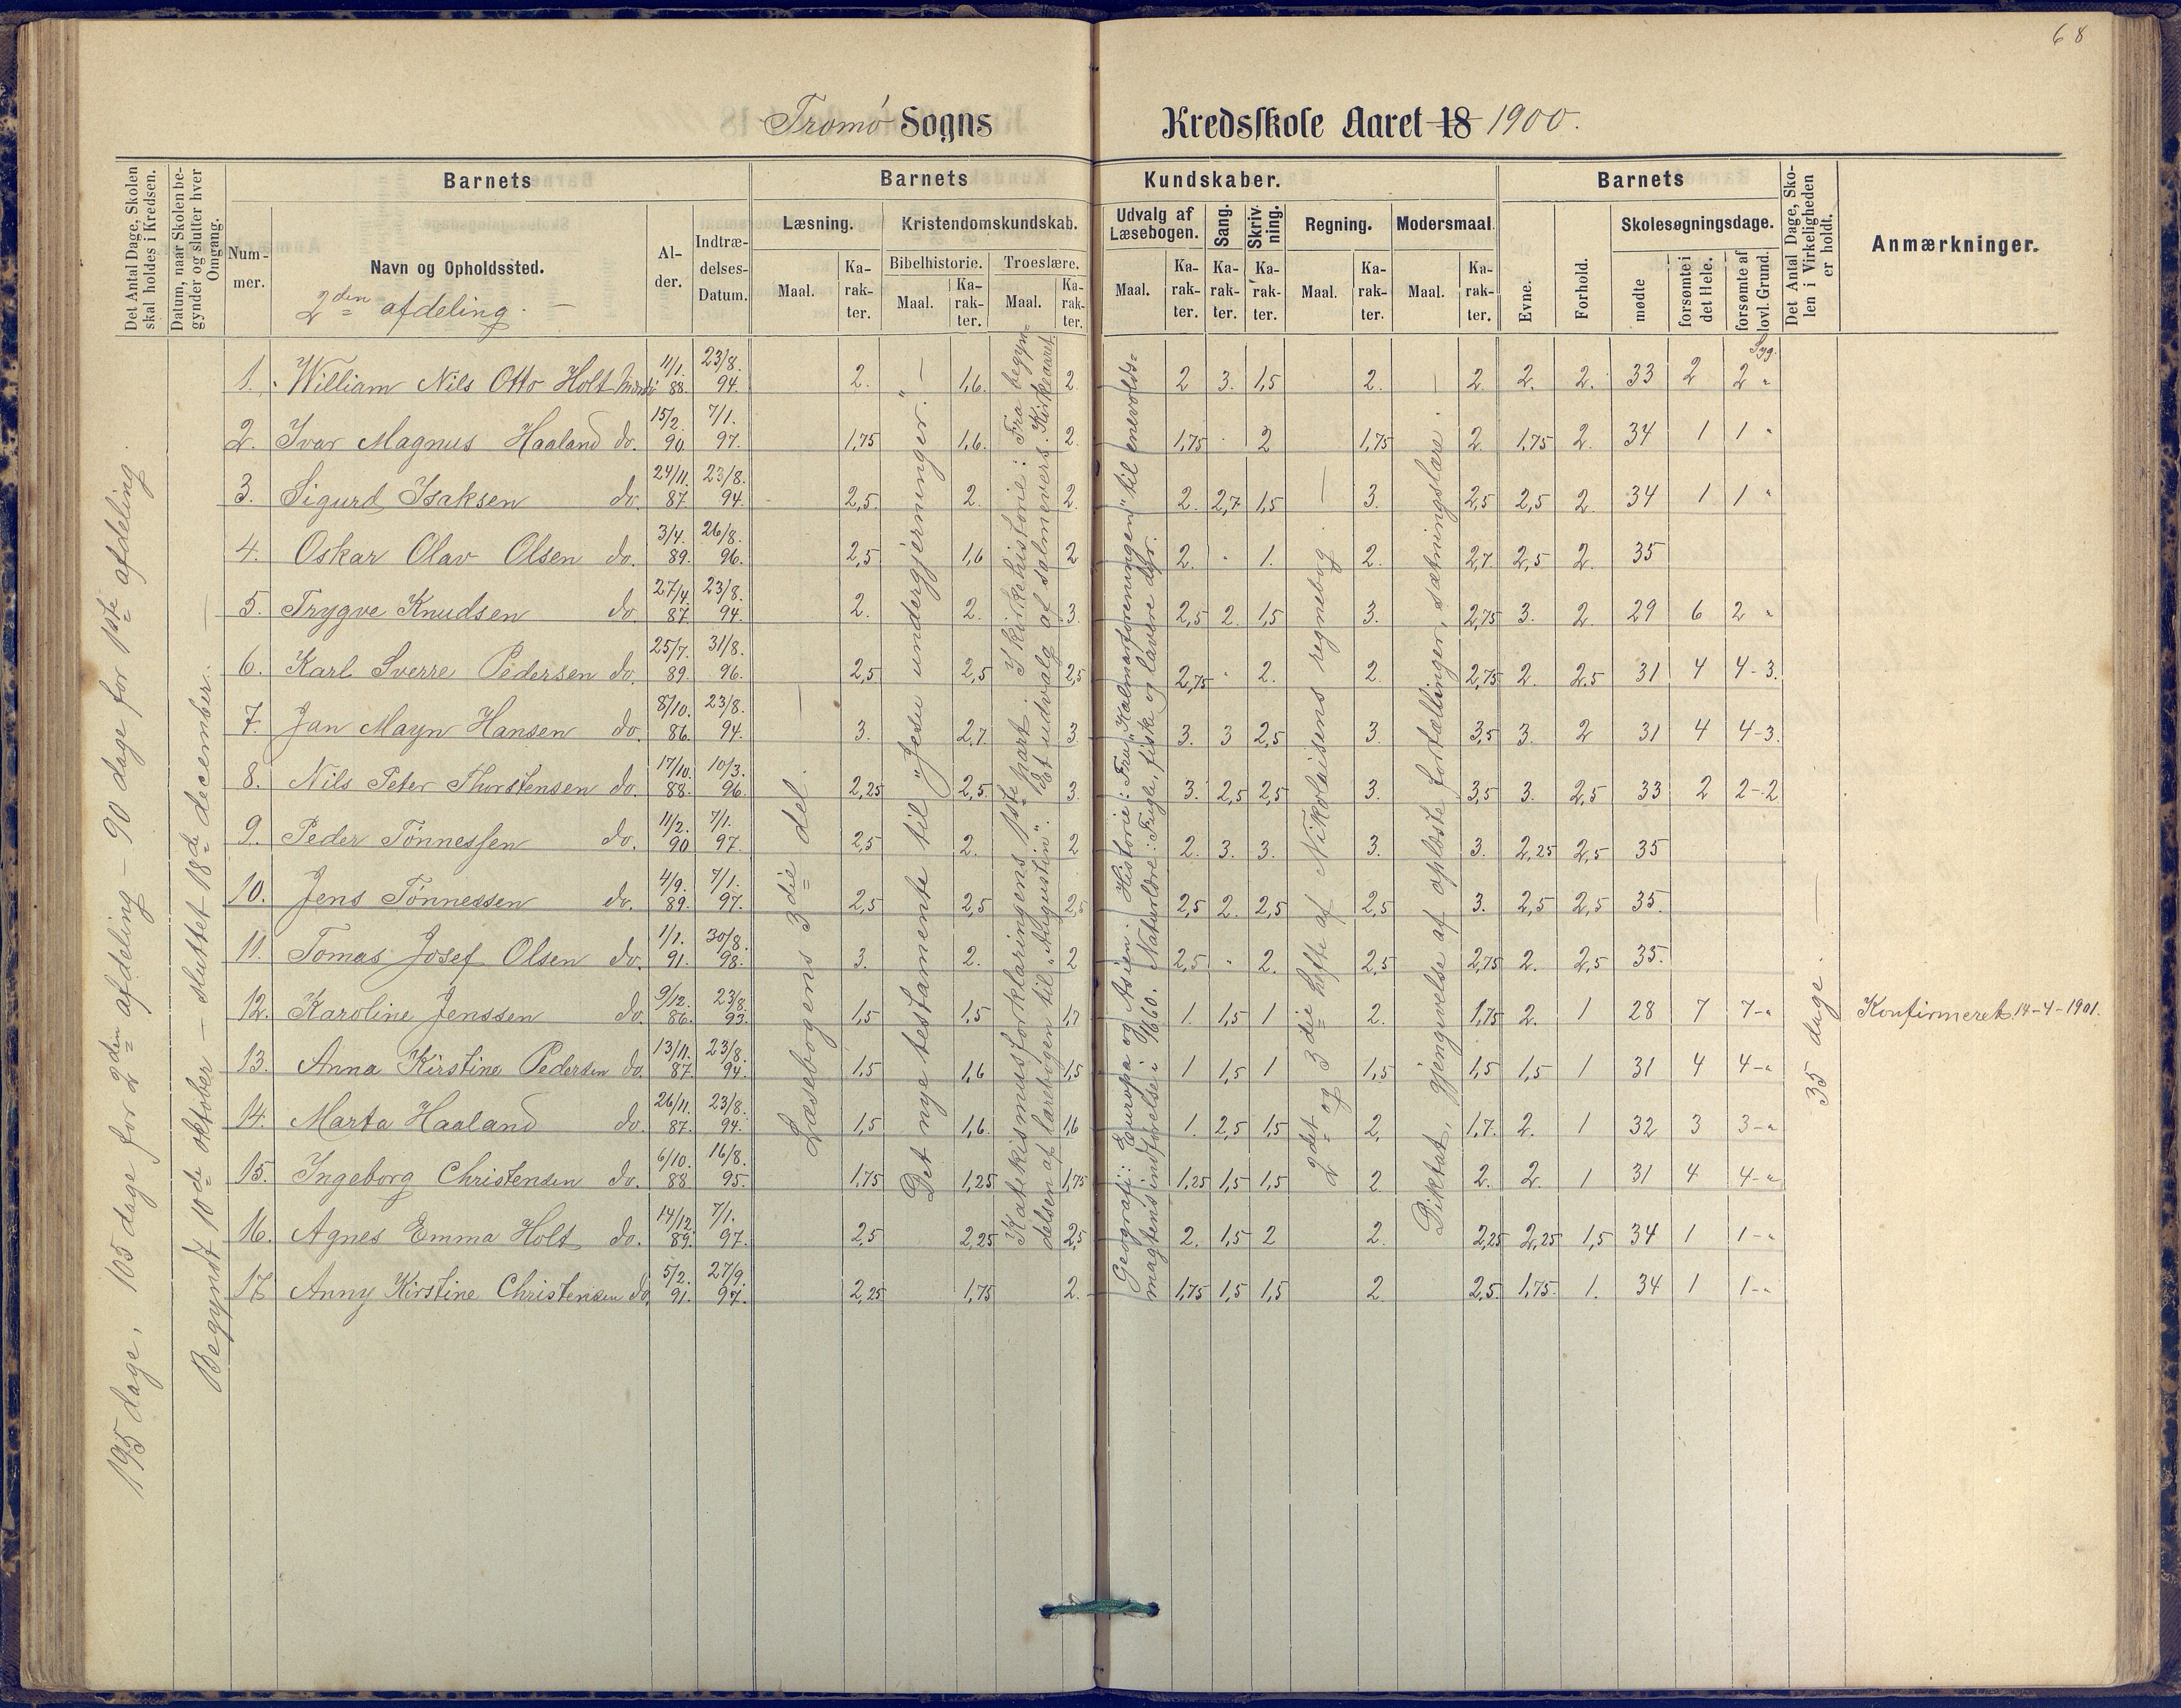 68
Tromø Sogns Kredsskole Aaret 18 1900.
Det Antal Dage, Skolen skal holdes i Kredsen.
Datum, naar Skolen begynder og slutter hver Omgang.
Barnets
Barnets Kundskaber.
Barnets
Det Antal Dage, Skolen i Virkeligheden er holdt.
Anmærkninger.
Nummer.
Navn og Opholdssted.
2den afdeling.
Alder.
Indtrædelses-Datum.
Læsning.
Kristendomskundskab.
Bibelhistorie.
Troeslære.
Udvalg af Læsebogen.
Sang.
Skrivning.
Regning.
Modersmaal.
Evne.
Forhold.
Skolesøgningsdage.
mødte
forsømte i det Hele.
forsømte af lovl. Grund.
Maal. Karakter. Maal. Karakter. Maal. Karakter. Maal. Karakter. Karakter. Karakter. Maal. Karakter. Maal. Karakter.
195 dage, 105 dage for 2den afdeling – 90 dage for 1ste afdeling.
Begyndt 10de oktober – sluttet 18de december. –
Læsebogens 3die del. –
Det nye testamente til "Jesu undergjerninger". –
Katekismusforklaringens 1ste part. I kirkehistorie: Fra begyndelsen af lærebogen til "Augustin". Et udvalg af salmevers. Kirkeaaret.
Geografi: Europa og Asien. Historie: Fra "Kalmarforeningen" til enevoldsmagtens indførelse i 1660. Naturlære: Fugle, fiske og lavere dyr.
2det og 3die hefte af Nikolaisens regnebog. –
Diktat, gjengivelse af oplæste fortællinger, sætningslære.
35 dage. –
1. William Nils Otto Holt 11/1. 88. 23/8. 94. 2. 1,6. 2. 2 3. 1,5 2. 2. 2. 2. 33 2 Syg. 2 "
2. Ivar Magnus Haaland do. 15/2. 90 7/1. 97. 1,75 1,6. 2. 1,75 . 2 1,75 2. 1,75 2. 34 1 1 "
3. Sigurd Isaksen do. 24/11. 87. 23/8. 94. 2,5. 2. 2. 2. 2,7 1,5 3. 2,5 2,5 2. 34 1 1 "
4. Oskar Olav Olsen do. 3/4. 89. 26/8. 96. 2,5 1,6 2 2. . 1. 2. 2,7. 2,5 2. 35
5. Trygve Knudsen do. 27/4. 87. 23/8. 94. 2. 2. 3. 2,5 2. 1,5 3. 2,75 3. 2 29 6 2 "
6. Karl Sverre Pedersen do. 25/7. 89. 31/8. 96. 2,5 2,5 2,5 2,75 . 2. 2. 2,75 2. 2,5 31 4 4-3.
7. Jan Mayn Hansen do. 8/10. 86. 23/8. 94. 3. 2,7. 3 3. 3 2,5 3. 3,5 3. 2 31 4 4-3.
8. Nils Peter Thorstensen do. 17/10. 88. 10/3. 96. 2,25 2,5 3. 3. 2,5 2,5 3. 3,5 3. 2,5 33 2 2-2
9. Peder Tønnessen do. 11/2. 90 7/1. 97. 2,5 2. 2 2. 3. 3. 3. 3. 2,25 2,5 35
10. Jens Tønnessen do. 4/9. 89. 7/1. 97. 2,5 2,5 2,5 2,5 2. 2,5 2,5 3. 2,5 2,5 35.
11. Tomas Josef Olsen do. 1/1. 91. 30/8. 98. 3. 2. 2 2,5 " 2. 2,5 2,75 2. 2,5 35.
12. Karoline Jenssen do. 9/12. 86. 23/8. 93. 1,5 1,5 1,7 1. 1,5 1 2. 1,75 2. 1 28 7 7-" Konfirmeret 14-4-1901.
13. Anna Kirstine Pedersen do. 13/11. 87. 23/8. 94. 1,5 1,6 1,5 1 1,5 1 1,5 1,5 1,5 1 31 4 4-"
14. Marta Haaland do. 26/11. 87. 23/8. 94. 1,5 1,6. 1,6 1. 2,5 1,5 2. 1,7. 2. 1 32 3 3-"
15. Ingeborg Christensen do. 6/10. 88 16/8. 95. 1,75 1,25 1,75 1,25 1,5 1,5 2 2. 2. 1 31 4 4-"
16. Agnes Emma Holt do. 14/12. 89. 7/1. 97. 2,5 2,25 2,5 2. 1,5 2 2. 2,25 2,25 1,5 34 1 1-"
17 Anny Kirstine Christensen do. 5/2. 91. 27/9. 97. 2,25 1,75 2. 1,75 1,5 1,5 2. 2,5. 1,75. 1. 34 1 1-"